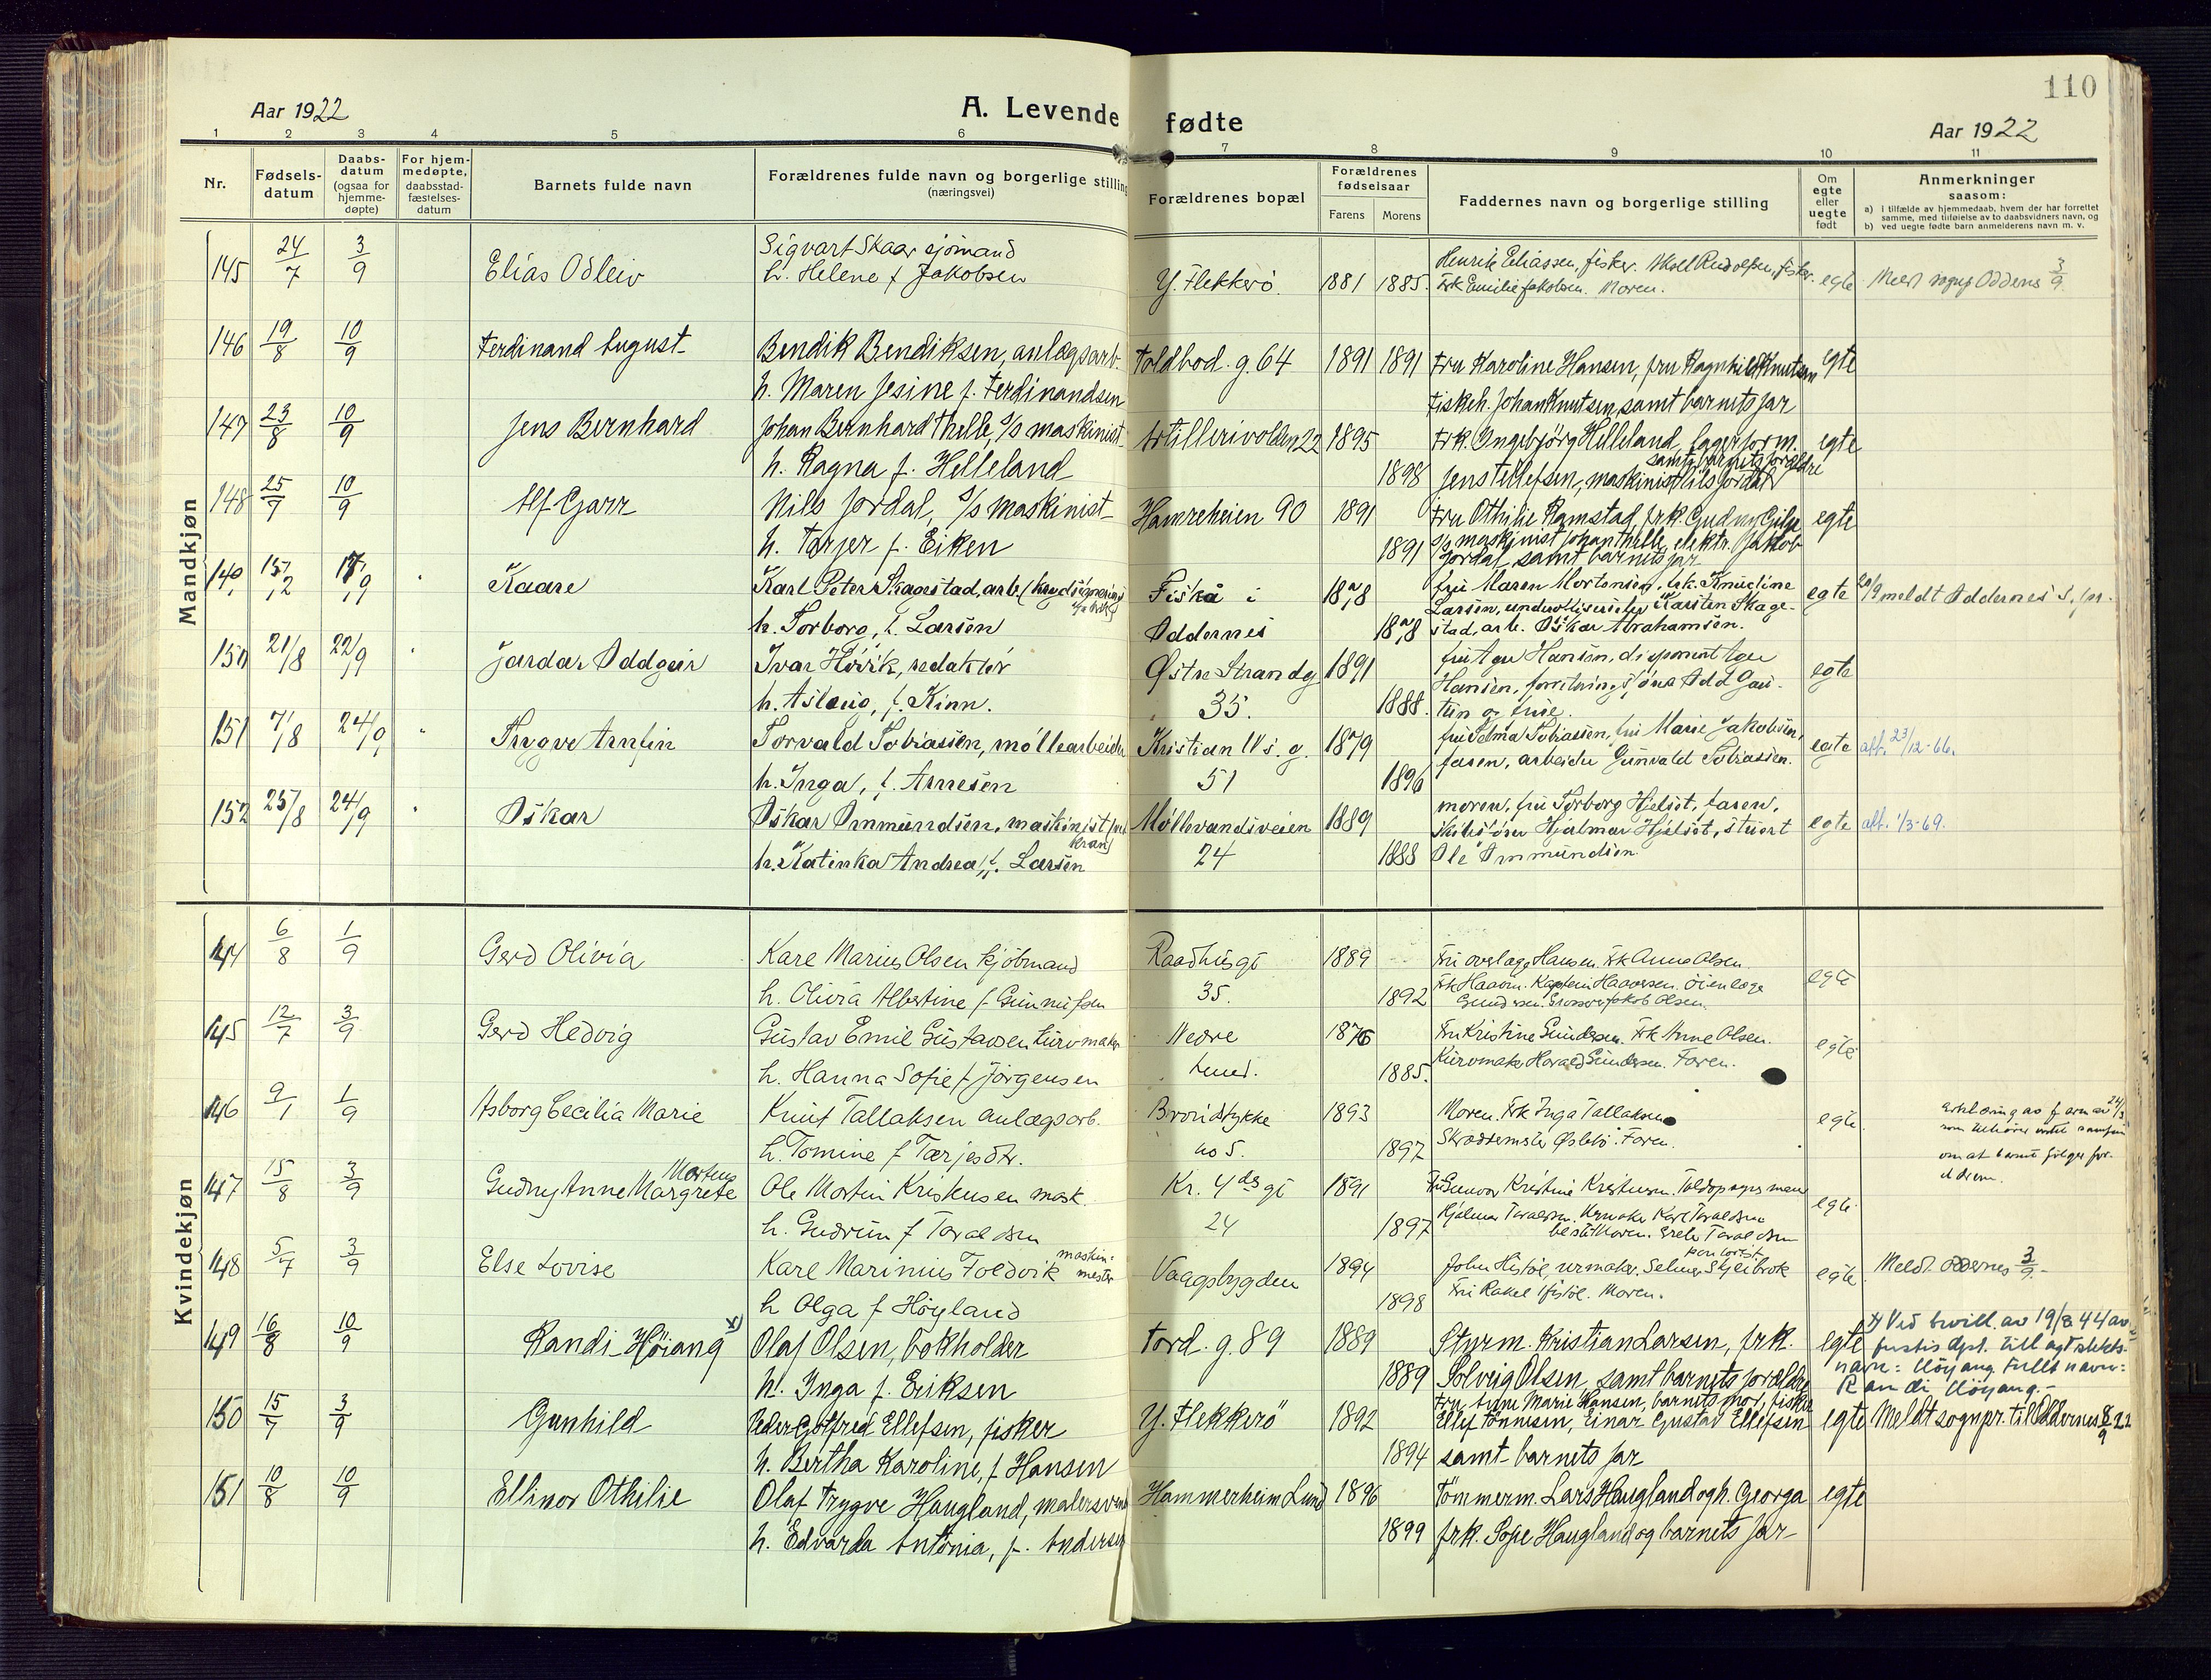 110
Aar 1922
A. Levende fødte
Aar 1922
1 2 3 4 5 6 7 8 9 10 11
Nr.
Fødsels-datum
Daabs-datum (ogsaa for hjemme-døpte)
For hjem-medøpte, daabsstad-fæstelses-datum
Barnets fulde navn
Forældrenes fulde navn og borgerlige stilling (næringsvei)
Forældrenes bopæl
Forældrenes fødselsaar
Farens Morens
Faddernes navn og borgerlige stilling
Om egte eller uegte født
Anmerkninger saasom:
a) i tilfælde av hjemmedaab, hvem der har forrettet samme, med tilføielse av to daabsvidners navn, og
b) ved uegte fødte barn anmelderens navn m. v.
Mandkjøn
145 24/7 3/9 Elias Odleiv Sigvart Skaar sjømand Y. Flekkerö 1881 1885. Henrik Eliassen, fisker. Rudolfsen, fisker. egte Meldt Oddernes 3/9
h. Helene f Jakobsen Frk Emilie Jakobsen. Moren.
146 19/8 10/9 Ferdinand August Bendik Bendiksen, anlægsarb. Toldbod. g. 64 1891 1891 Fru Karoline Hansen, fru Ragnhild Knutsen egte
h. Maren Jesine f. Ferdinandsen fiskeh. Johan Knutsen, samt barnets far
147 23/8 10/9 Jens Bernhard Johan Bernhard Thelle, s/s maskinist Artillerivolden 22 1895 Frk. Ingebjørg Helleland, lagerform. egte
h. Ragna f. Helleland 1898 Jens Tellefsen, maskinist Nils Jordal samt barnets forældre
148 25/7 10/9 Alf Garr Nils Jordal, s/s maskinist Hamreheien 90 1891 Fru Othilie Ramstad, frk. Gudny egte
h. Tarjer f. Eiken 1891 s/s maskinist Johan Thelle, elektr. Jakob
Jordal samt barnets far
15/2 17/9 Kaare Karl Peter Skagestad, arb. Fiskå i fru Maren Mortensen, frk. Knudine egte 20/9 meldt Oddernes s.pr.
h. Torborg, f. Larsen Oddernes Larsen, underofficer Karsten Skage-
stad, arb. Oskar Abrahamsen.
150 21/8 22/9 Jardar Oddgeir Ivar Hövik, redaktör Østre Strandg 1891 fru Agu Hansen, disponent Agu egte
h. Aslaug, f. Kinn. 35. 1888. Hansen, Odd Gau-
tun og frue.
151 7/8 24/9 Trygve Arnfin Torvald Tobiassen, möllearbeider Kristian IVs. g. 1879 fru Selma Tobiassen, fru Marie Jakobsen, egte att. 23/12-66.
h. Inga, f. Arnesen 51 1896 faren, arbeider Gunvald Tobiassen.
152 25/8 24/9 Oskar Oskar Ommundsen, maskinist Möllevandsveien 1889 moren, fru Torborg Hjelset, faren, egte att. 1/3-69.
h. Katinka Andrea, f. Larsen 24 1888 Hjalmar Hjelset, stuert
Ole Ommundsen
Kvindekjøn
144 6/8 1/9 Gerd Olivia Karl Marius Olsen kjöbmand Raadhusgt 1889 Fru overlæge Hansen. Frk Anna Olsen. egte
h. Olivia Albertine f Gunnufsen 35. 1892 Kaptein Haaversen. öienlæge
Gundersen. Grosserer Jakob Olsen
145 12/7 3/9 Gerd Hedvig Gustav Emil Gustavsen kurvmaker Nedre 1876 Fru Kristine Gundersen. Frk Anne Olsen. egte
h. Hanna Sofie f Jörgensen Lund. 1885. Kurvmaker Harald Gundersen. Faren.
146 9/1 1/9 Asborg Cecilia Marie Knut Tallaksen anlægsarb. Brovidtykke 1893 Moren. Frk Inga Tallaksen egte. Erklæring av
h. Tomine f Tarjesdtr. no 5. 1897 Skræddermester Øslebö. Faren. om at barnet fölger for-
ældrene.
147 15/8 3/9 Gudny Anne Margrete Ole Martin Kristensen mask. Kr. 4des gt 1891 Gunvor Kristine Kristensen. Toldopsynsmand egte
h. Gudrun f Taraldsen 24 1897 Hjalmar Taraldsen. Urmaker Karl Taraldsen
148 5/7 3/9 Else Lovise Karl Marinius Foldvik maskin-mester Vaagsbygden 1894 John Histöl, urmaker. Selmer Skjeibrok egte Meldt oddernes 3/9.-
h Olga f Höyland 1898 Fru Rakel Histöl. Moren.
149 16/8 10/9 Randi Höiang x) Olaf Olsen, bokholder Tord. g. 89 1889 Styrm. Kristian Larsen, frk. egte x) Ved bevill. av 19/8 44 av
h. Inga f. Eriksen 1889 Solveig Olsen samt barnets forældre justis dpt. till agt slekts-
navn: Höyang. Fullt navn:
Randi Höyang.-
150 15/7 3/9 Gunhild Peder Gotfred Ellefsen, fisker Y. Flekkerö 1892 Fru Anne Marie Hansen, barnets mor, fisker egte Meldt sognpr. til Oddernes 8/9 22
h. Bertha Karoline, f Hansen Ellef Tönnesen, Einar Gustav Ellefsen
1894 samt barnets far
151 10/8 10/9 Ellinor Othilie Olaf Trygve Haugland, malersvend Hammerheim Lund 1896 Tömmerm. Lars Haugland og h. Georga egte
h. Edvarda Antonia, f. Andersen 1899 frk. Sofie Haugland og barnets far